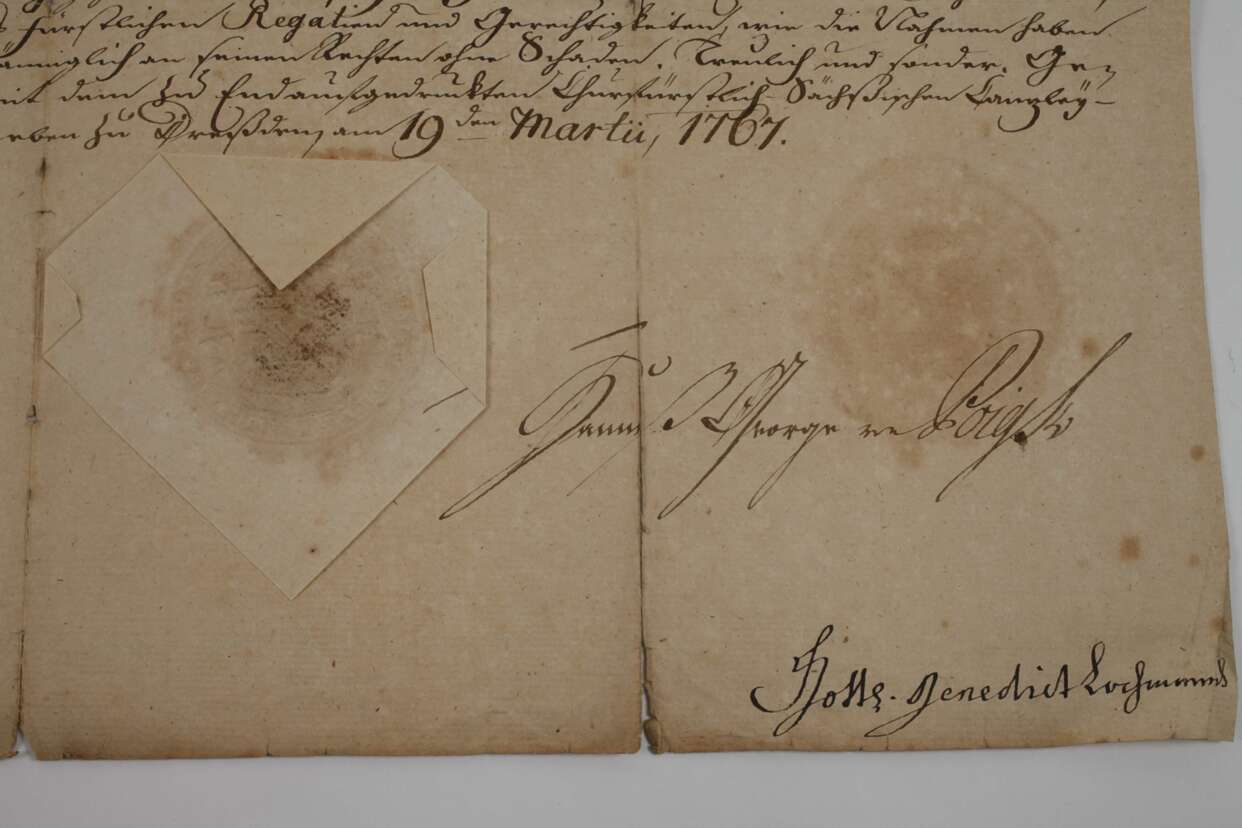 Fürstlichen Regalien und Gerechtigkeiten, wie die Nahmen haben
männiglich an seinen Rechten ohne Schaden. Treulich und sonder. Ge-
mit dem zu Endausgedruckten Churfürstlich-Sächßischen Canzley-
eben zu Dreßden, am 19 den Martii, 1767.
Hannß George
Gottl. Benedict Lochmann